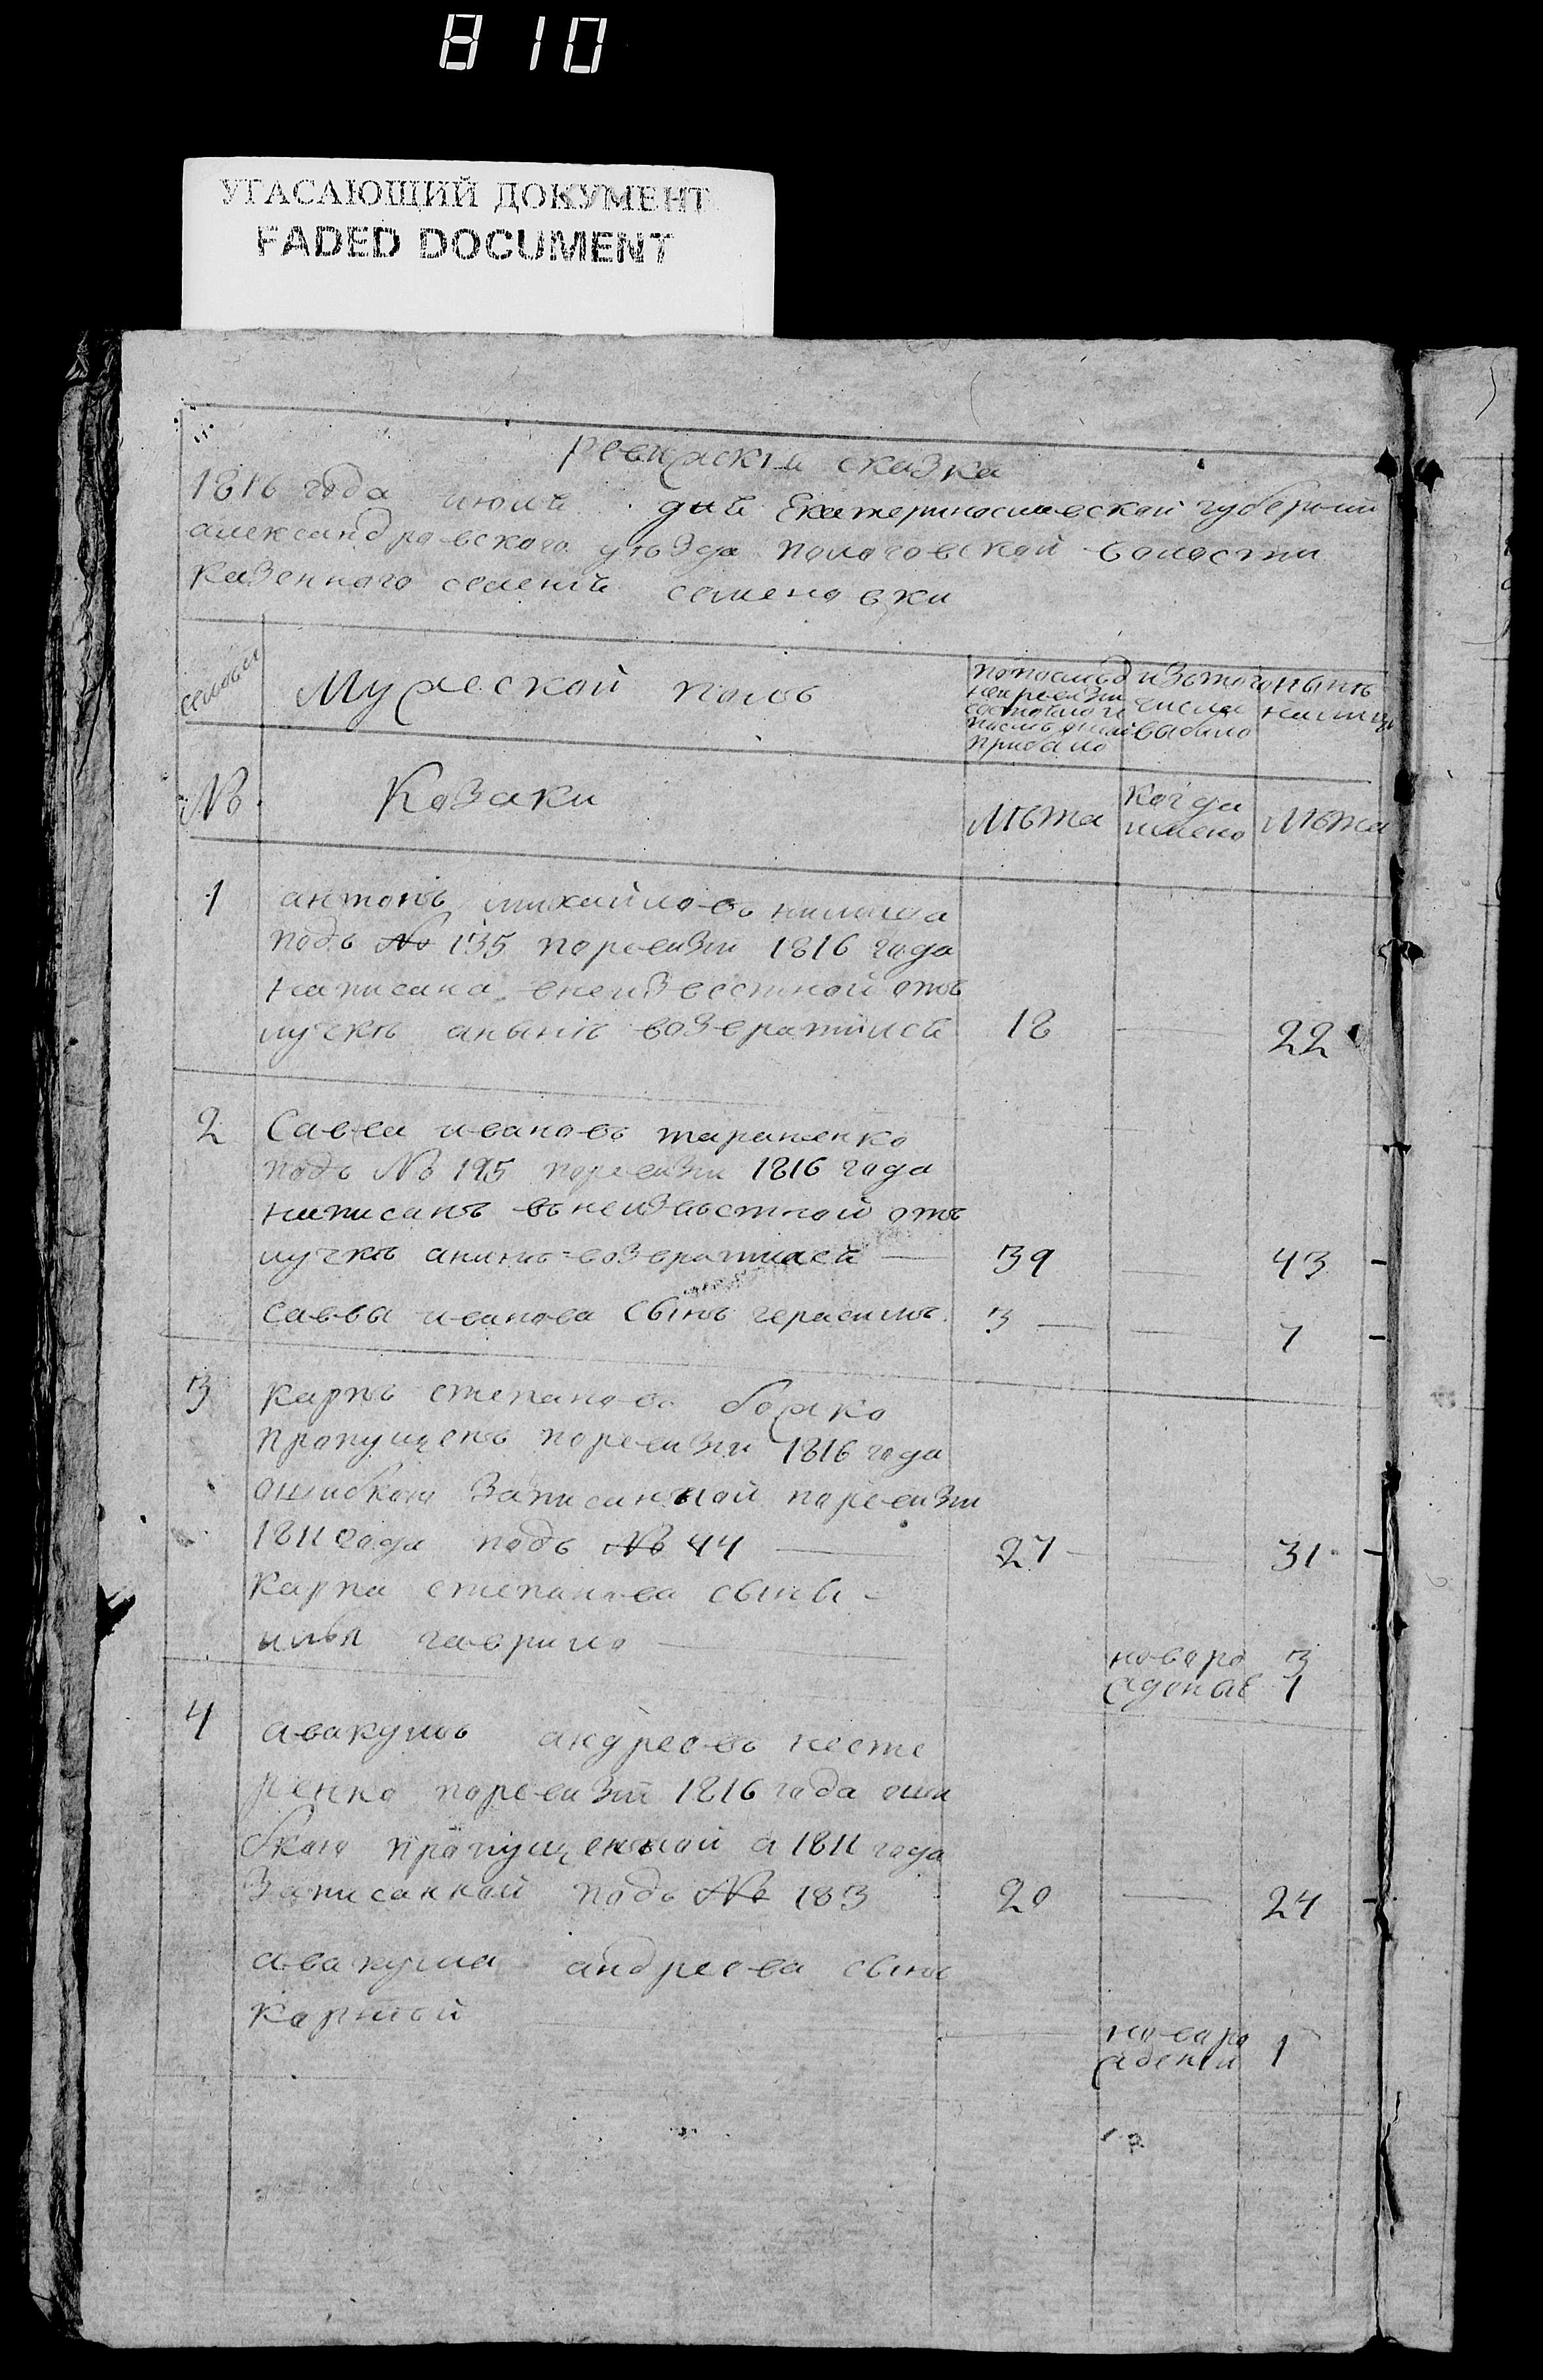 810
УГАСАЮЩИЙ ДОКУМЕНТ
FADED DOCUMENT
ревижскія сказка
1816 года июля дня Екатеринославской губерніи
александровского уѣзда пологовской волости
казенного селенія семеновки
семьи
Мужеской полъ
по послѣд
ней ревизіи
состояло и
послѣ оной
прибыло
изъ того
числа
выбыло
нынѣ
на лицо
№
Козаки
лѣта
когда
имено
лѣта
1
антонъ михайловъ
подъ № 135 поревизіи 1816 года
написана внеизвестной отъ
лучкѣ анынѣ возвратился
18
22
2
Савва ивановъ тараненко
подъ № 195 поревизіи 1816 года
написанъ вънеизвѣстной отъ
лучкѣ анынѣ возвратился
39
43
Саввы иванова сынъ герасимъ
3
7
3
карпъ степановъ божко
пропущенъ поревизіи 1816 года
ошибкою записанной поревизіи
1811 года подъ № 44
27
31
карпа степанова сыны
илья гаврило
новоро
ждоные
3
1
4
авакумъ андреевъ несте
ренко поревизіи 1816 года оши
бкою пропущенной а 1811 года
записанной подъ № 183
20
24
авакума андреева сынъ
корнѣй
новоро
жденъ
1